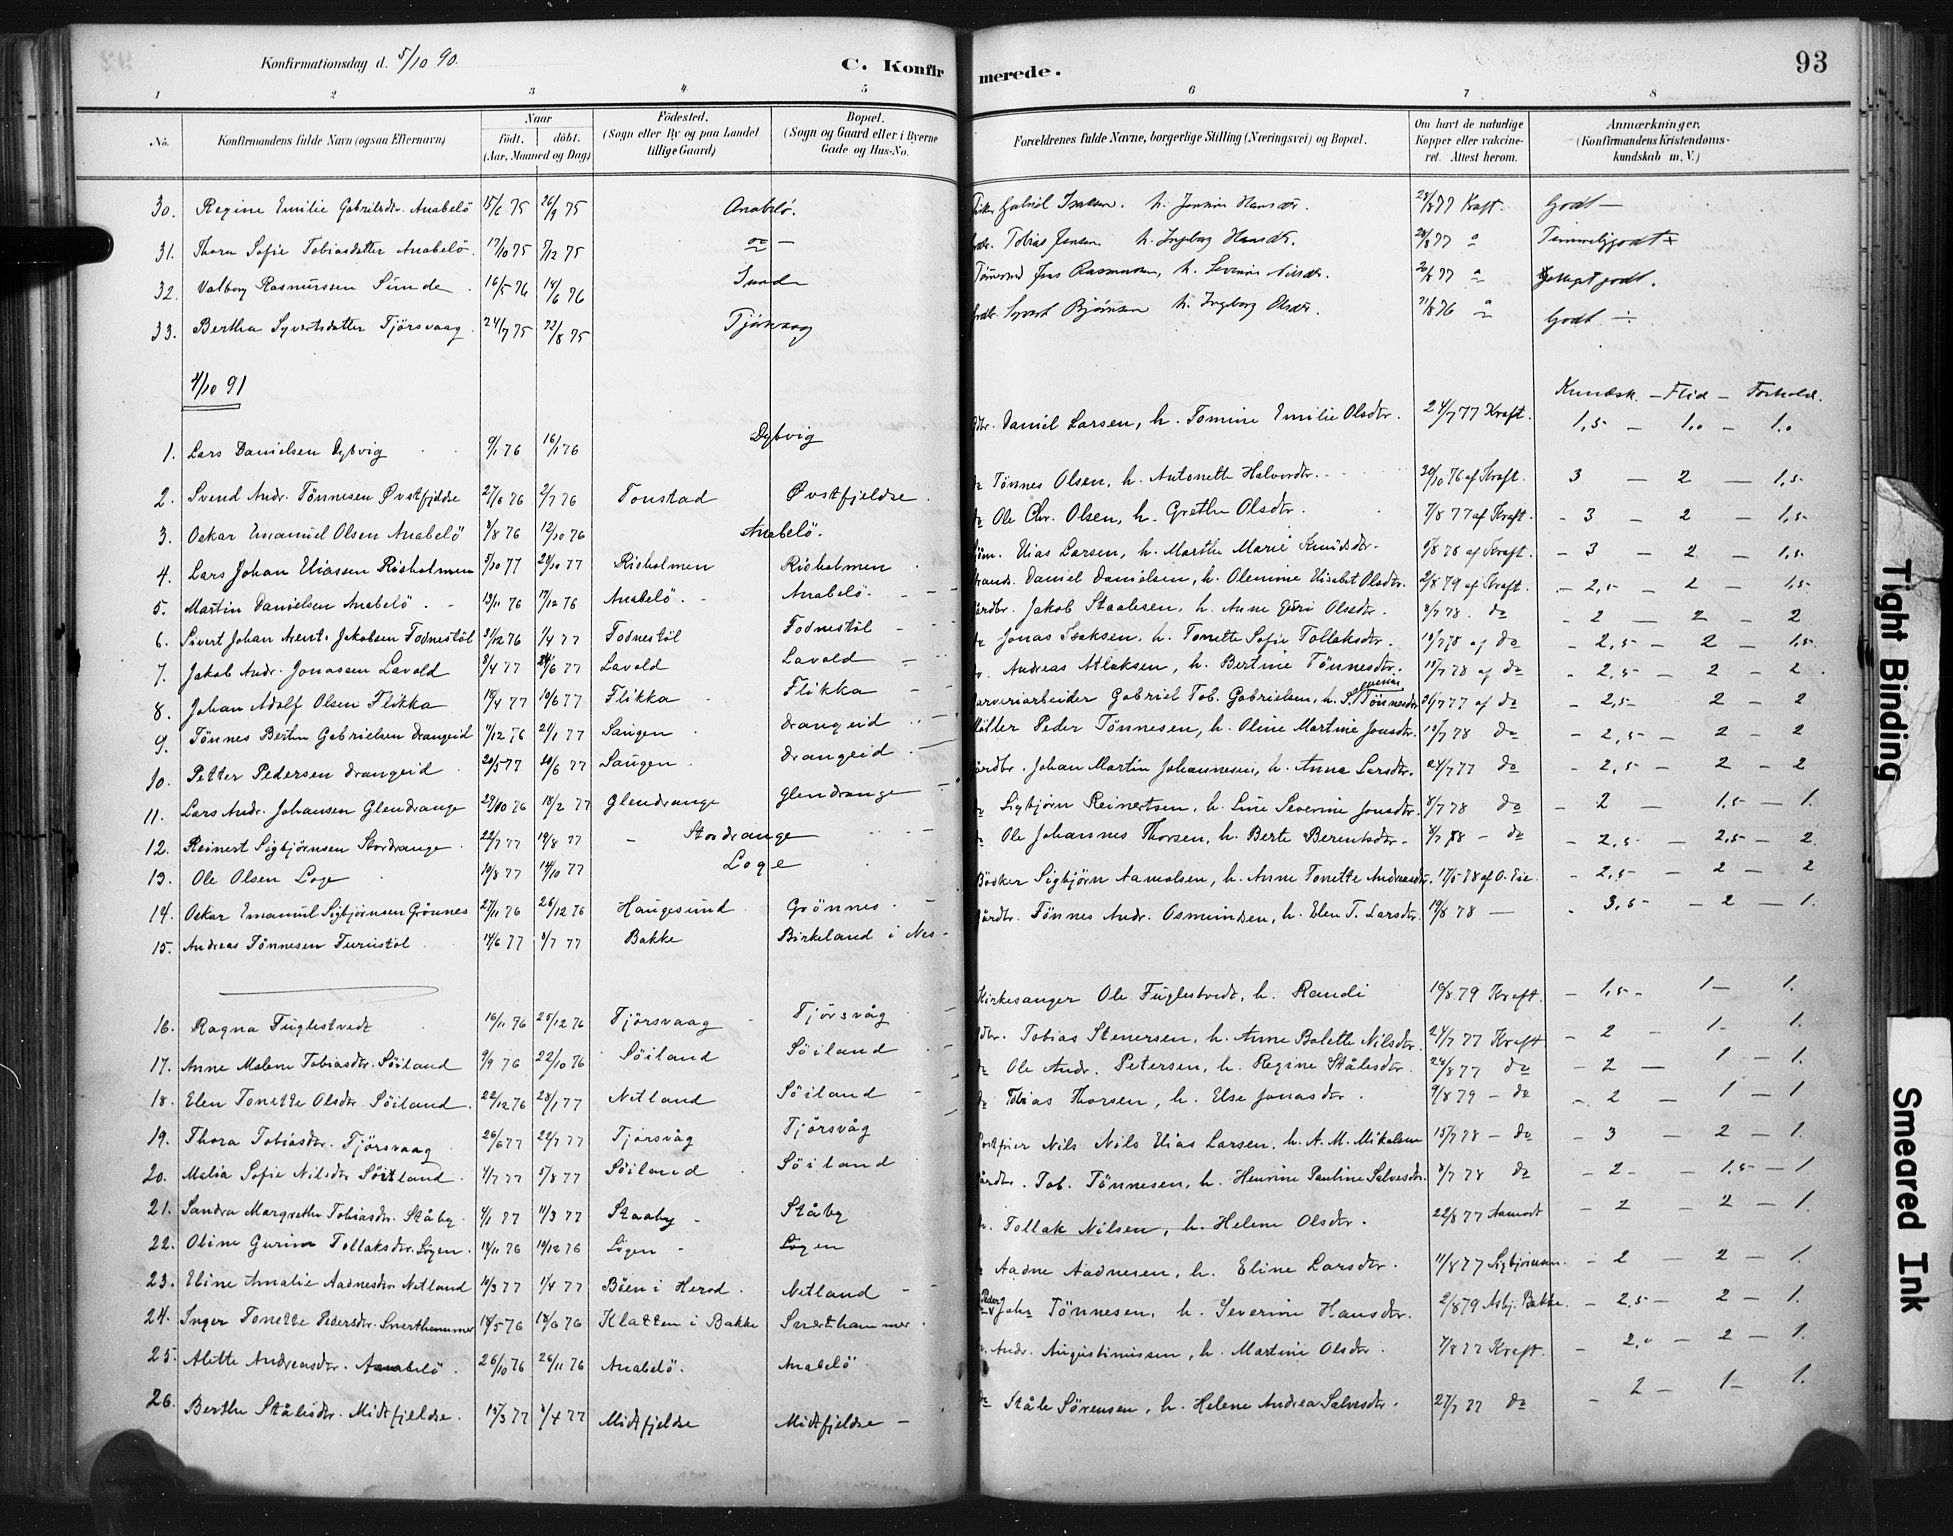 Konfirmationsdag d. 5/10 90.
C. Konfirmerede.
93
1 2 3 4 5 6 7 8
No.
Konfirmandens fulde Navn (ogsaa Efternavn)
Naar
födt. döbt.
(Aar, Maaned og Dag)
Födested.
(Sogn eller By og paa Landet tillige Gaard)
Bopæl.
(Sogn og Gaard eller i Byerne Gade og Hus-No.
Forældrenes fulde Navne, borgerlige Stilling (Næringsvei) og Bopæl.
Om havt de naturlige Kopper eller vakcineret. Attest herom.
Anmærkninger.
(Konfirmandens Kristendomskundskab m. V.)
30. Regine Emilie Gabrielsdr. Anabelö 15/6 75 26/9 75 Anabelö. Gabriel Isaksen. h. Hansdr. 77 Kraft. Godt —
31. Thora Sofie Tobiasdatter Anabelö. 17/10 75 7/12 75 do — Tobias Jensen h. Ingeborg Hansdr. 77 Temmeliggodt
32. Valborg Rasmussen Sunde 16/5 76 18/6 76 Sunde Jens Rasmussen, h. Severine 77 godt.
33. Bertha Syvertsdatter Tjörsvaag 24/7 75 22/8 75 Tjörsvaag Syvert Bjørnsen h. Ingeborg Olsdr. 76 Godt ÷
4/10 91
Kundsk. — Flid — Forhold.
1. Lars Danielsen Dybvig 9/1 76 16/1 76 Dybvig Daniel Larsen, h. Tomine Emilie Olsdtr. 24/7 77 Kraft. 1,5 — 1.0 — 1.0
2. Svend Andr. Tönnesen Øvstfjeldse 27/6 76 2/7 76 Tonstad Øvstfjeldse. Tönnes Olsen, h. Antonette Halvordtr. 30/10 76 af Kraft. 3 — 2 — 1,5
3. Oskar Emanuel Olsen Anabelö 8/8 76 12/10 76 Anabelö. Ole Chr. Olsen, h. Grethe Olsdtr. 7/8 77 af Kraft. 3 — 2 — 1,5
4. Lars Johan Eliassen Risholmen 5/10 77 28/10 77 Risholmen Risholmen Elias Larsen, h. Marthe Marie Knudsdtr. af Kraft. 3 — 2 — 1,5
5. Martin Danielsen Anabelö. 13/11 76 17/12 76 Anabelö. Anabelö. Daniel Danielsen, h. Olemine Elisabet Olsdtr. 2/8 79 af Kraft. 2,5 — 2 — 1,5
6. Sivert Johan Arent. Jakobsen Fodnestöl 31/12 76 1/4 77 Fodnestöl Fodnestöl Jakob Staalesen, h. Anne Guri Olsdtr. 8/7 78. do 2 — 2 — 2
7. Jakob Andr. Jonassen Lavold 8/4 77 77 Lavold Lavold Jonas Isaksen, h. Tonette Sofie Tollaksdtr. af do 2,5 — 2 — 1,5.
8. Johan Adolf Olsen Flikka 18/4 77 10/6 77 Flikka Flikka Andreas Atlaksen, h. Bertine Tönnesdtr. 78 af do 2,5 — 2 — 2.
9. Tönnes Bertin Gabrielsen Drangeid 11/12 76 21/1 77 Saugen Drangeid Garveriarbeider Gabriel Tob. Gabrielsen, h. S. Tönnesdtr 77 af do 2,5 — 2 — 2
10. Petter Pedersen Drangeid 20/5 77 77 Saugen. Drangeid. Möller Peder Tönnesen, h. Oline Martine Jonsdtr. 78 do 2,5 — 2 — 2
11. Lars Andr. Johansen Glendrange 29/10 76 18/2 77 Glendrange Glendrange Gårdbr. Johan Martin Johannesen, h. Anna Larsdtr. 24/7 77 do 2,5 — 2 — 2
12. Reinert Sigbjörnsen Stordrange. 22/7 77 19/8 77 — Stordrange Sigbjörn Reinertsen, h. Sine Severine Jonsdtr. 8/7 78 do 2 — 1,5 — 1.
13. Ole Olsen Loge 10/8 77 14/10 77 Loge Ole Johannes Thorsen, h. Berte Berentsdtr. 8/7 78 — do 2,5 — 2,5 — 2.
14. Oskar Emanuel Sigbjörnsen Grönnes 27/11 76 26/12 76 Haugesund Grönnes. Bödker Sigbjörn Aanedsen, h. Anne Tonette Andreasdtr. 2,5 — 2 — 2
15. Andreas Tönnesen Furustöl 14/6 77 8/7 77 Bakke Birkeland i Nes. Gårdbr. Tönnes Andr. Osmundsen, h. Elen T. Larsdtr. 19/8 78 — 3,5 — 2 — 1.
16. Ragna Fuglestvedt 16/11 76 25/12 76 Tjörsvaag Tjörsvåg Kirkesanger Ole Fuglestvedt, h. Randi 19/8 79 Kraft. 1,5 — 1 — 1.
17. Anne Malene Tobiasdtr. Söiland 9/9 76 22/10 76 Söiland Söiland Tobias Stenersen, h. Anne Bolette Nilsdtr. 24/7 77 Kraft. 2 — 1 — 1.
18. Elen Tonette Olsdtr. Söiland. 22/12 76 28/1 77 Netland Söiland Ole Andr. Petersen, h. Regine Stålesdtr. 24/8 77 do 2 — 1 — 1.
19. Thora Tobiasdtr. Tjörsvaag 26/6 77 22/7 77 Tjörsvåg Tjörsvåg Tobias Thorsen, h. Else Jonasdtr. 9/8 79 — do 2 — 1 — 1
20. Malia Sofie Nilsdtr Söiland. 4/7 77 5/8 77 Söiland Söiland Nils Elias Larsen, h. A. M. Mikalsen 78 — do 3 — 2 — 1.
21. Sandra Margrethe Tobiasdtr. Ståby. 4/1 77 11/3 77 Staaby Ståby Tob. Tönnesen, h. Henrine Pauline Salvesdtr. 8/7 78 do 2 — 1,5 — 1.
22. Oline Gurine Tollaksdtr. Lögen. 76 76 Lögen Lögen Tollak Nilsen, h. Helene Olsdtr. 22/8 77 Aamodt 2 — 2 — 1.
23. Eline Amalie Aadnesdtr. Netland 10/3 77 1/4 77 Böen i Herad. Netland Aadne Aadnesen, h. Eline Larsdtr. 11/8 77 Sigbjörnsen. 2 — 2 — 1.
24. Inger Tonette Pedersdtr. Snerthammer 18/5 76 18/6 76 Klatten i Bakke Snerthammer. Peder Tönnesen, h. Severine Hansdtr. 2/8 79 Asbj. Bakke. 2,5 — 2 — 1.
25. Alette Andreasdtr. Anabelö. 26/10 76 26/11 76 Anabelö. Anabelö Andr. Augustinussen, h. Martine Olsdtr. 7/8 77 Kraft. 2,0 — 2 — 1.
26. Berthe Stålesdtr. Midtfjeldse. 77 77 Midtfjeldse Midtfjeldse — Ståle Sörensen, h. Helene Andrea Salvesdtr. 27/7 77 do 2 — 1 — 1.
Tight Binding
Smeared Ink